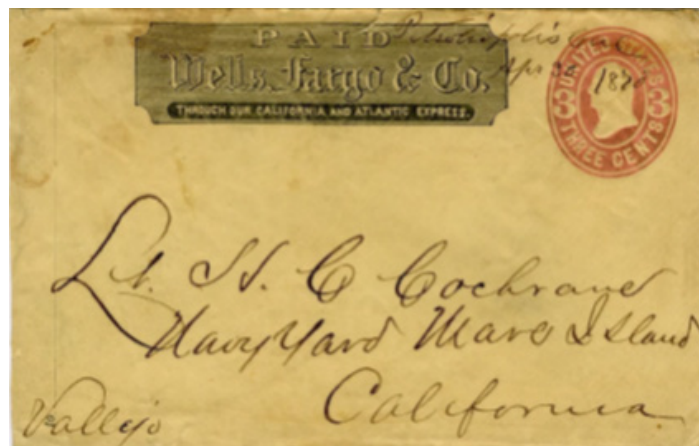 PAID
Wells, Fargo & Co.
THROUGH OUR CALIFORNIA AND ATLANTIC EXPRESS.
Apr 30 1870
UNITED STATES
THREE CENTS
Lt. H. C Cochrane
Navy Yard Mare Island
California
Vallejo